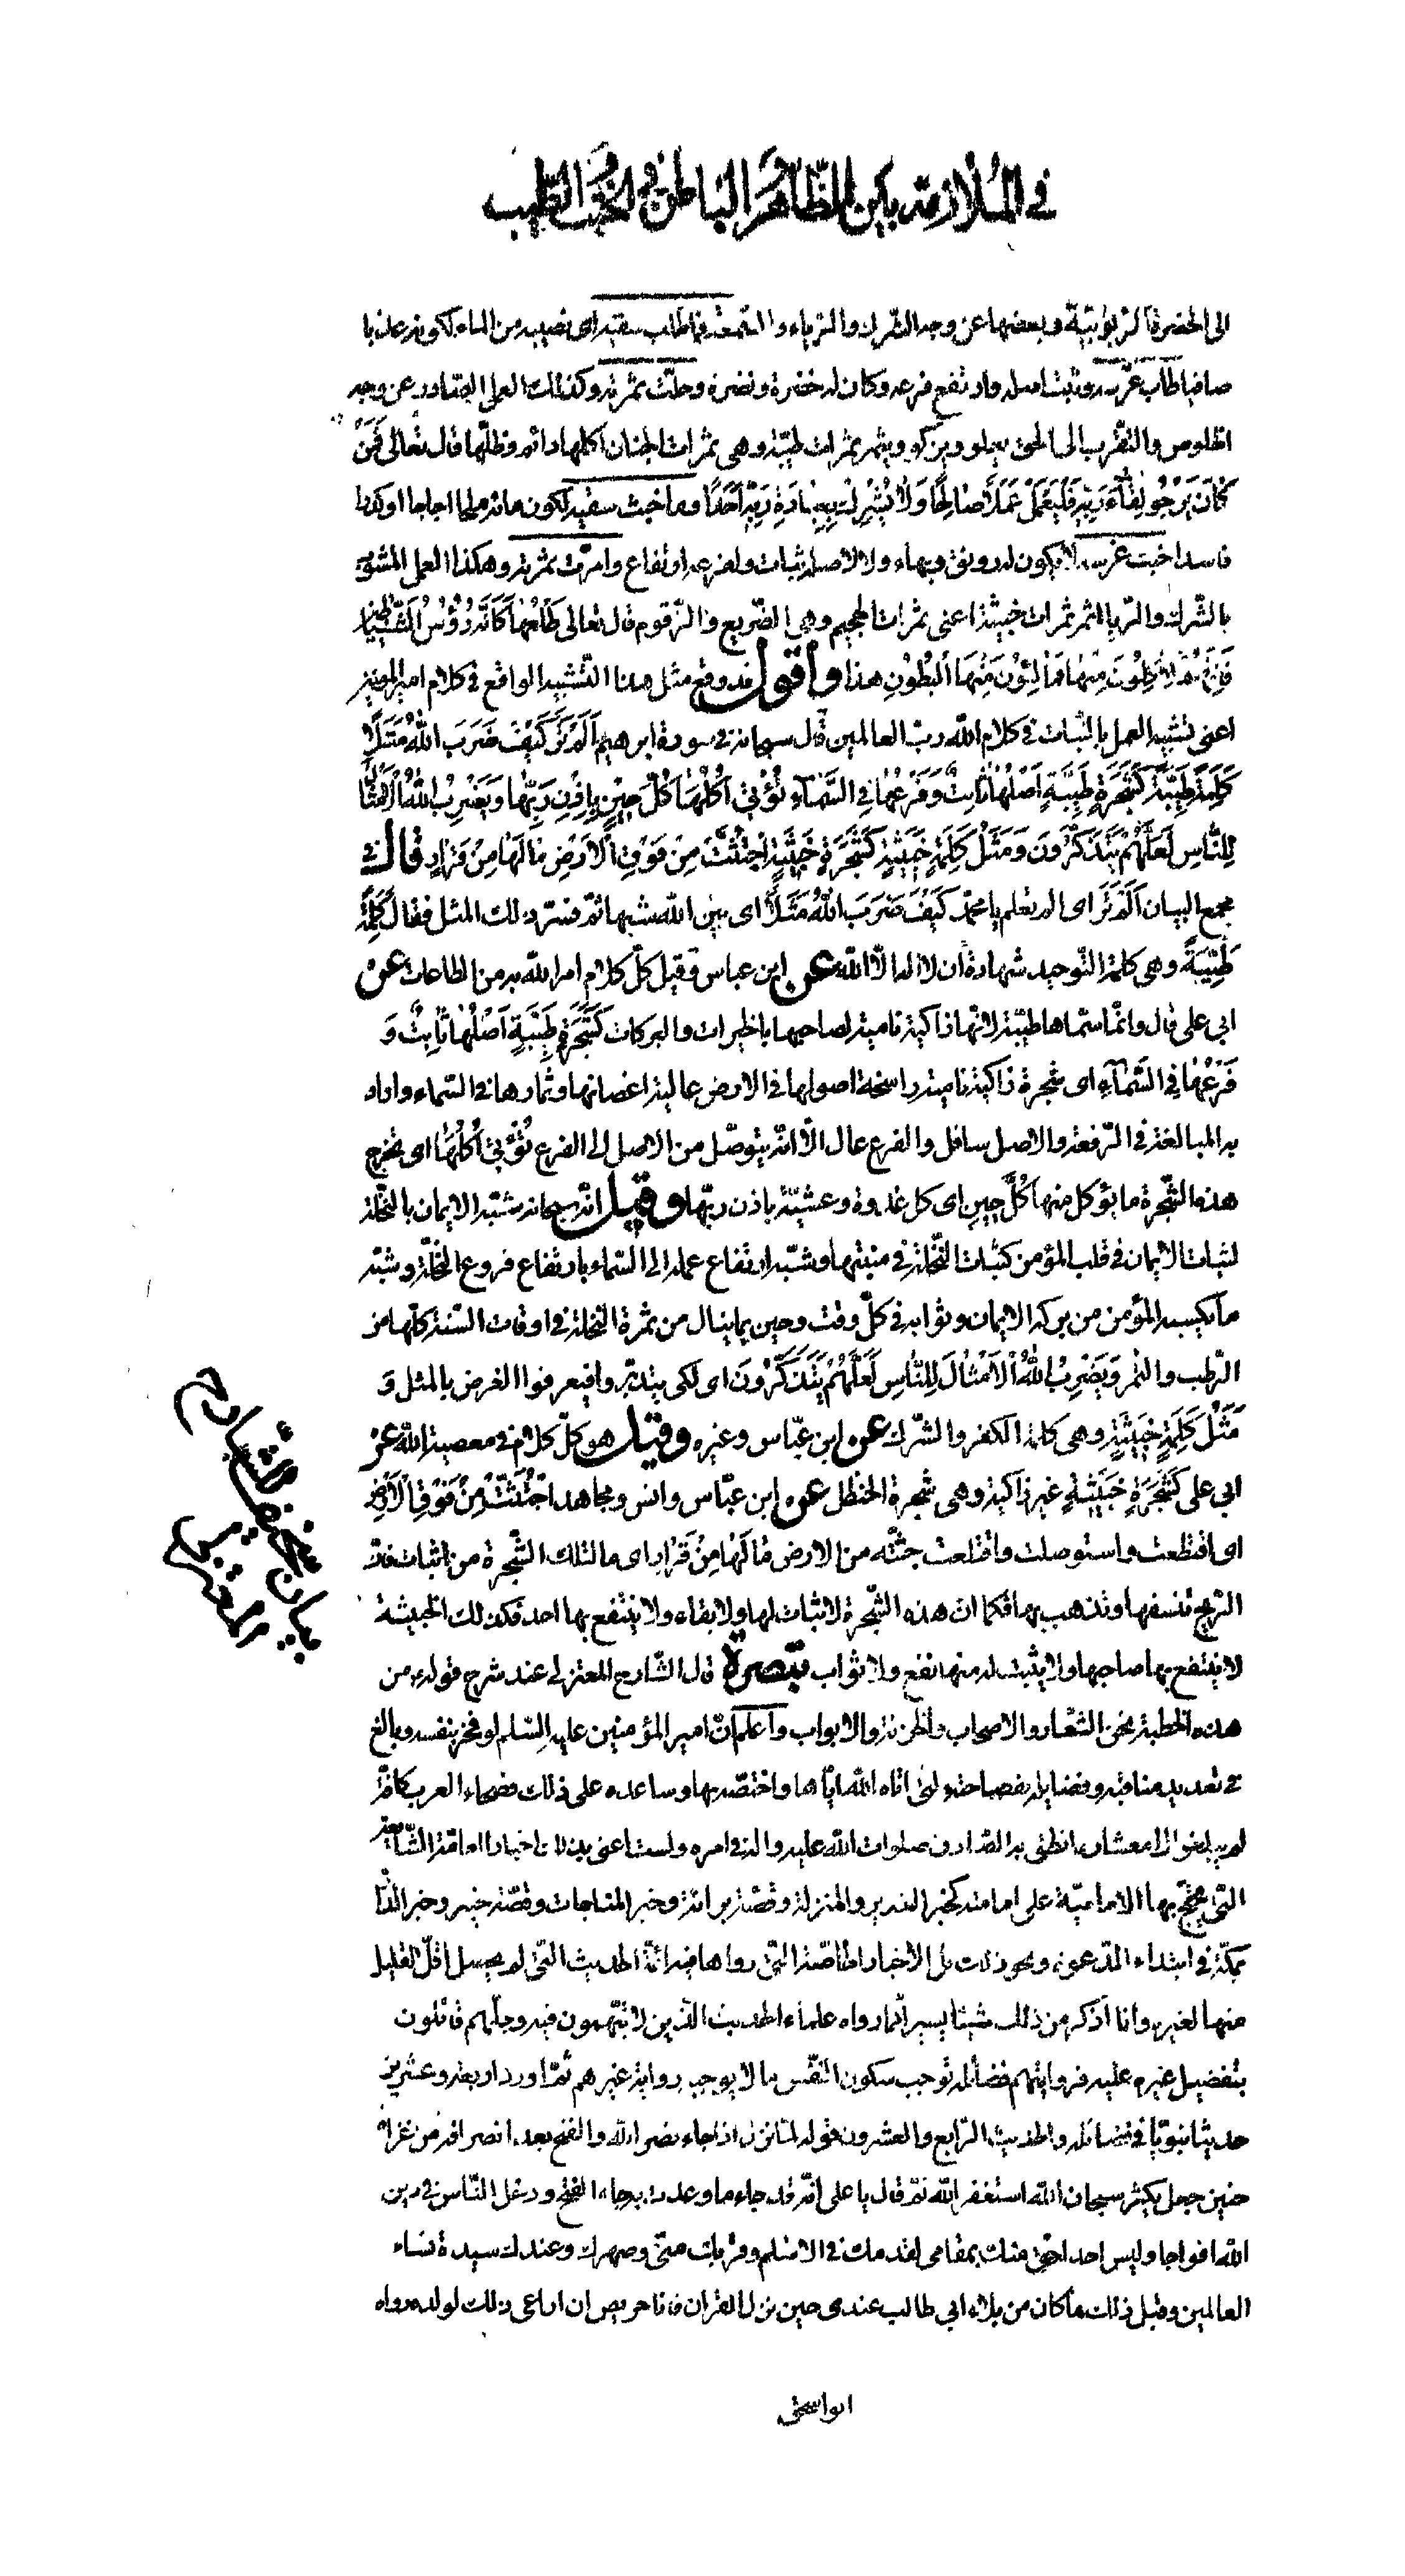 في الملازمة بين الظاهر الباطن في الخبث الطيب
الى الحضرة الربوبيّة وبعضها عن وجه الشرك والرياء والسّمعة فما طاب سقيه اى نصيبه من الماء لكونه عذبا
صافيا طاب غرسه وثبت اصله وارتفع فرعه وكان له خضرة ونضرة وحلّت ثمرته وكذلك العمل الصّادر عن وجه
الخلوص والتقرّب الى الحق يعلو ويزكو ويثمر بثمرات طيّبة وهى ثمرات الجنان اكلها دائم وظلّها قال تعالى فَمَنْ
كٰانَ يَرْجُو لِقٰآءَ رَبِّهِ فَلْيَعْمَلْ عَمَلًا صٰالِحًا وَلٰا يُشْرِكْ بِعِبٰادَةِ رَبِّهِ اَحَدًا وما خبث سقيه لكون مائه ملحا اجاجا او كدرا
فاسدا خبث غرسه لا يكون له رونق وبهاء ولا لاصله ثبات ولفرعه ارتفاع وامرّت ثمرته وهكذا العمل المشوّب
بالشّرك والرّيا اثمر ثمرات خبيثة اعنى ثمرات الجحيم وهى الضّريع والزّقوم قال تعالى طَلْعُهٰا كَاَنَّهُ رُؤُسُ الشَّيٰاطِينِ
فَاِنَّهُمْ لَاٰكِلُونَ مِنْهٰا فَمٰالِئُونَ مِنْهَا الْبُطُونَ هذا واقول قد وقع مثل هذا التّشبيه الواقع فى كلام امير المؤمنين
اعنى تشبيه العمل بالنّبات فى كلام اللّٰه ربّ العالمين قال سبحانه فى سورة ابرهيم اَلَمْ تَرَ كَيْفَ ضَرَبَ اللّٰهُ مَثَلًا
كَلِمَةً طَيِّبَةً كَشَجَرَةٍ طَيِّبَةٍ اَصْلُهٰا ثٰابِتٌ وَفَرْعُهٰا فِى السَّمٰآءِ تُؤْتِى اُكُلَهٰا كُلَّ حِينٍ بِاِذْنِ رَبِّهٰا وَيَضْرِبُ اللّٰهُ الْاَمْثٰالَ
لِلنّٰاسِ لَعَلَّهُمْ يَتَذَكَّرُونَ وَمَثَلُ كَلِمَةٍ خَبِيثَةٍ كَشَجَرَةٍ خَبِيثَةٍ اجْتُثَّتْ مِنْ فَوْقِ الْاَرْضِ مٰا لَهٰا مِنْ قَرٰارٍ قال فى
مجمع البيان اَلَمْ تَرَ اى الم تعلم يا محمّد كَيْفَ ضَرَبَ اللّٰهُ مَثَلًا اى بيّن اللّٰه شبها ثم فسّر ذلك المثل فقال كَلِمَةً
طَيِّبَةً وهى كلمة التّوحيد شهادة ان لا اله الّا اللّٰه عن ابن عباس وقيل كلّ كلام امر اللّٰه به من الطاعات عن
ابى على قال وانّما سمّاها طيّبة لانّها زاكية نامية لصاحبها بالخيرات والبركات كَشَجَرَةٍ طَيِّبَةٍ اَصْلُهٰا ثٰابِتٌ وَ
فَرْعُهٰا فِى السَّمٰآءِ اى شجرة زاكية نامية راسخة اصولها فى الارض عالية اغصانها وثمارها فى السّماء واراد
به المبالغة فى الرّفعة والاصل سافل والفرع عال الّا انّه يتوصّل من الاصل الى الفرع تُؤْتِى اُكُلَهٰا اى تخرج
هذه الشّجرة ما يؤكل منها كُلَّ حِينٍ اى كل غدوة وعشيّة باذن ربّها وقيل انّه سبحانه شبّه الايمان بالنّخلة
لثبات الايمان فى قلب المؤمن كثبات النّخلة فى منبتها وشبّه ارتفاع عمله الى السّماء بارتفاع فروع النخلة وشبّه
ما يكسبه المؤمن من بركة الايمان وثوابه فى كلّ وقت وحين بما ينال من ثمرة النخلة فى اوقات السّنة كلّها من
الرّطب والتّمر وَيَضْرِبُ اللّٰهُ الْاَمْثٰالَ لِلنّٰاسِ لَعَلَّهُمْ يَتَذَكَّرُونَ اى لكى يتدبّروا فيعرفوا الغرض بالمثل وَ
مَثَلُ كَلِمَةٍ خَبِيثَةٍ وهى كلمة الكفر والشّرك عن ابن عبّاس وغيره وقيل هو كلّ كلام فى معصية اللّٰه عن
ابى على كَشَجَرَةٍ خَبِيثَةٍ غير زاكية وهى شجرة الحنظل عن ابن عبّاس وانس ومجاهد اجْتُثَّتْ مِنْ فَوْقِ الْاَرْضِ
اى اقتطعت واستوصلت واقتلعت جثّته من الارض مٰا لَهٰا مِنْ قَرٰارٍ اى ما لتلك الشّجرة من ثبات فانّ
الرّيح تنسفها وتذهب بها فكما ان هذه الشّجرة لا ثبات لها ولا بقاء ولا ينتفع بها احد فكذلك الخبيثة
لا ينتفع بها صاحبها ولا يثبت له منها نفع ولا ثواب تبصرة قال الشّارح المعتزلى عند شرح قوله من
هذه الخطبة نحن الشّعار والاصحاب والخزنة والابواب واعلم انّ امير المؤمنين عليه السّلم لو فخر بنفسه وبالغ
فى تعديد مناقبه وفضايله بفصاحته الّتى اتاه اللّٰه ايّاها واختصّه بها وساعده على ذلك فصحاء العرب كافّة
لم يبلغوا الى معشار ما نطق به الصّادق صلوات اللّٰه عليه واله فى امره ولست اعنى بذلك اخبار العامّة الشّايعة
الّتى يحتجّ بها الاماميّة على امامته كخبر الغدير والمنزلة وقصّة برائة وخبر المناجات وقصّة خيبر وخبر الدّار
بمكّة فى ابتداء الدّعوة ونحو ذلك بل الاخبار الخاصّة الّتى رواها فيه ائمّة الحديث الّتى لم يحصل اقلّ القليل
منها لغيره وانا اذكر من ذلك شيئا يسيرا ممّا رواه علماء الحديث الّذين لا يتّهمون فيه وجلّهم قائلون
بتفضيل غيره عليه فروايتهم فضائله توجب سكون النّفس ما لا يوجب رواية غيرهم ثمّ اورد اربعة وعشرين
حديثا نبويّا فى فضائله والحديث الرّابع والعشرون قوله لمّا نزل اذا جاء نصر اللّٰه والفتح بعد انصرافه من غزاة
حنين جعل يكثر سبحان اللّٰه استغفر اللّٰه ثمّ قال يا على انّه قد جاء ما وعدت به جاء الفتح ودخل النّاس فى دين
اللّٰه افواجا وليس احد احقّ منك بمقامى لقدمك فى الاسلم وقربك منّى وصهرك وعندك سيدة نساء
العالمين وقبل ذلك ما كان من بلاء ابى طالب عندى حين نزل القران فانا حريص ان اراعى ذلك لولده رواه
بيان نحن الشعار من شارح
المعتزلى
ابو اسحق